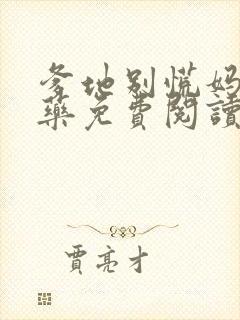 爹地别慌妈
藥免費閱讀
賈亮才